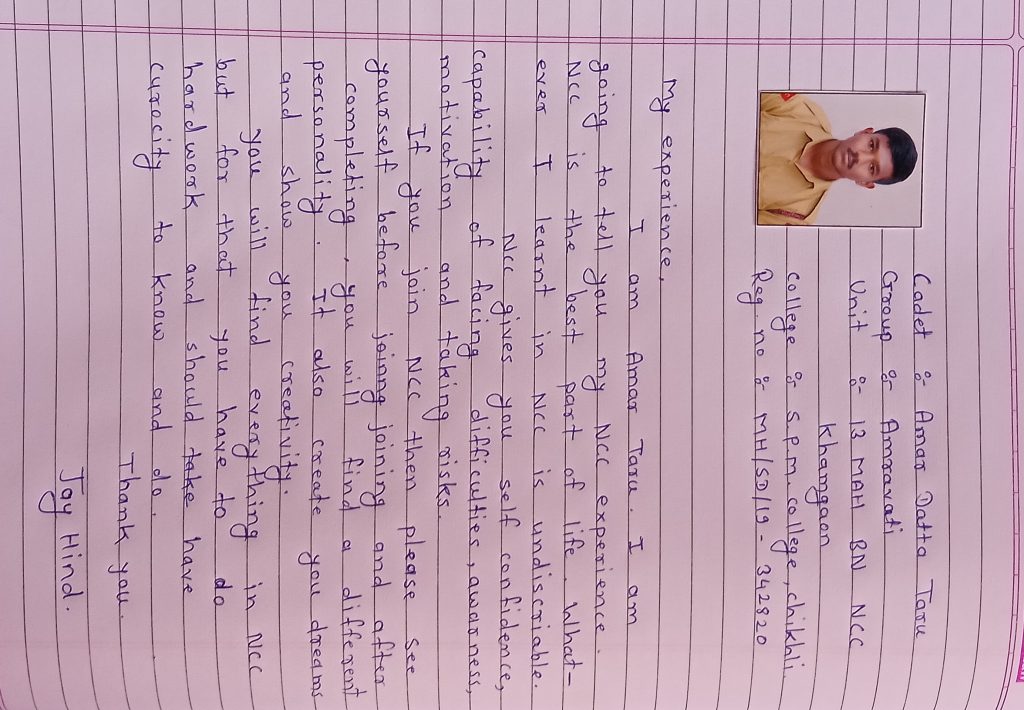 Cadet :- Amar Datta Taru
Group :- Amravati
Unit :- 13 MAH BN NCC
Khamgaon
college :- S.P.M. college, chikhli.
Reg. no :- MH/SD/19 - 342820
My experience,
I am Amar Taru. I am
going to tell you my NCC experience.
NCC is the best part of life. What-
ever I learnt in NCC is undiscriable.
NCC gives you self confidence,
capability of facing difficulties, awarness,
motivation and taking risks.
If you join NCC then please see
yourself before joinng joining and after
completing, you will find a different
personality. It also create you dreams
and show you creativity.
You will find everything in NCC
but for that you have to do
hardwork and should take have
curocity to know and do.
Thank you.
Jay Hind.